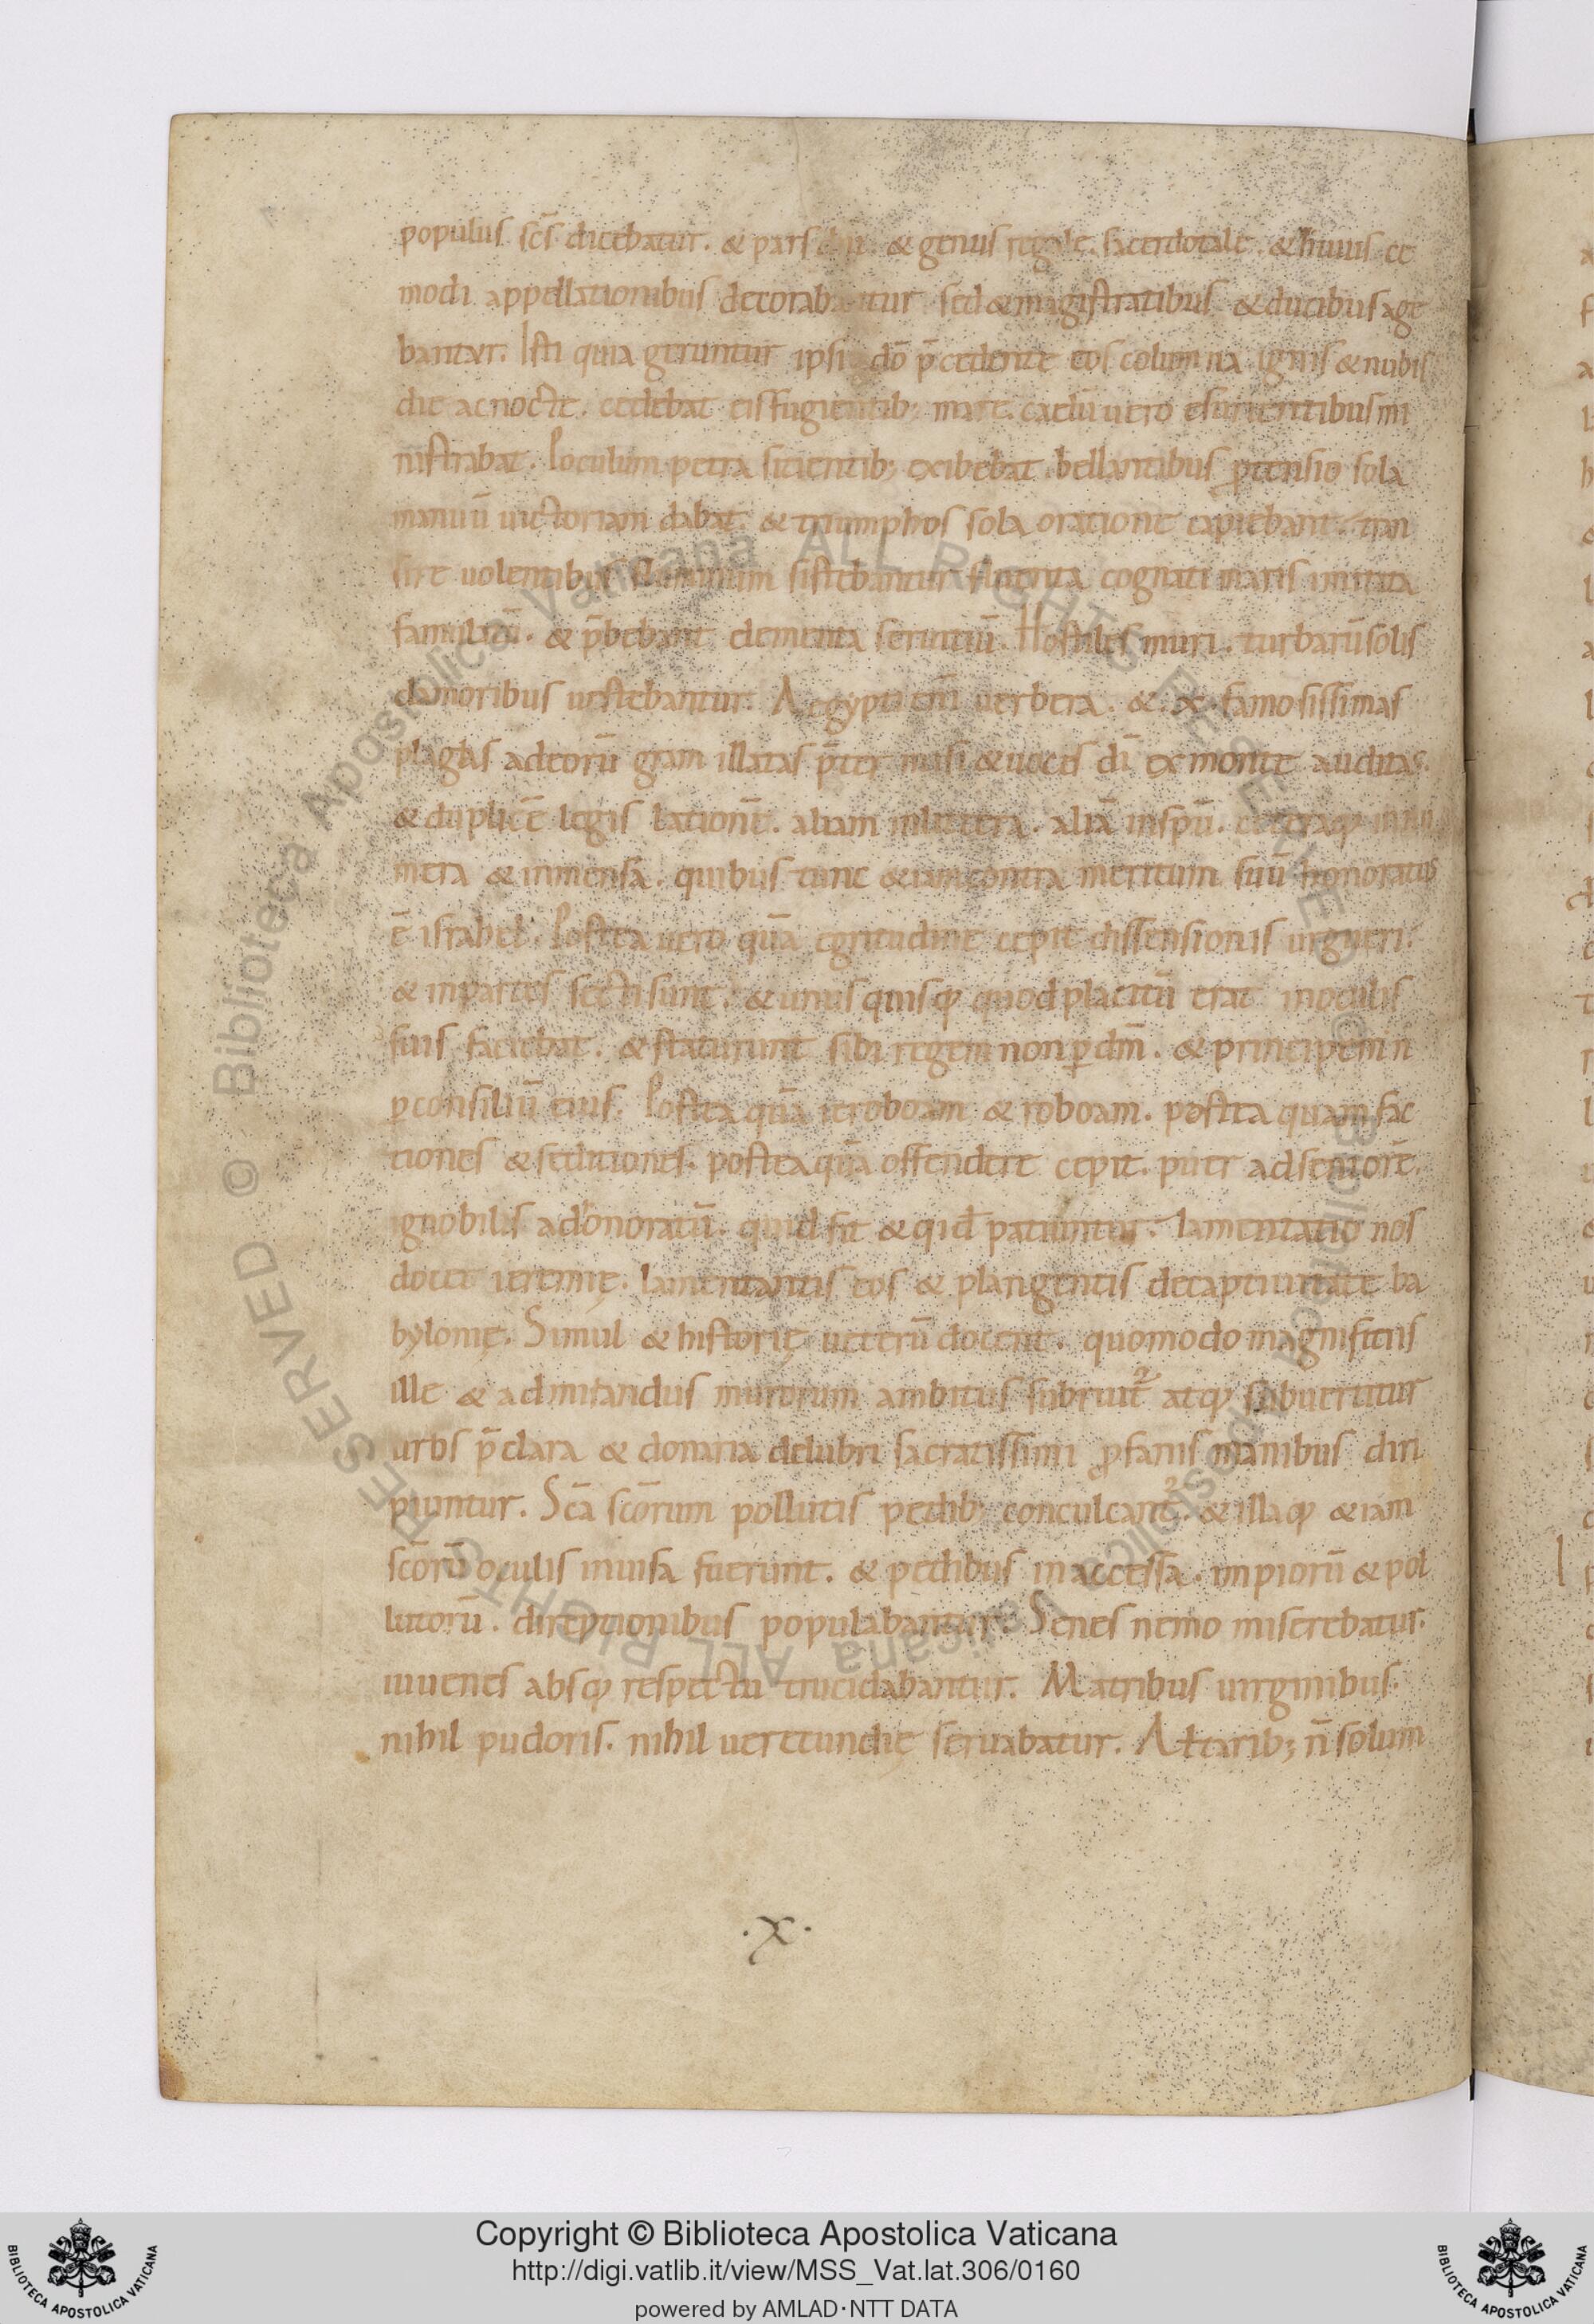 populus scs̄ dicebatur. & pars dn̄i. & genus regale. sacerdotale. & huius ce
modi appellationibus decorabantur sed & magistratibus & ducibus age
bantur. Isti quia geruntur ipsi dō p̄cedente eos columna ignis & nubis
die ac nocte. cedebat eis fugientib; mare. caelū uero esurientibus mi
nistrabat. Poculum petra sitientib; exibebat. bellantibus ptensio sola
manuū uictoriam dabat. & triumphos sola oratione capiebant. tran
sire uolentibus fluminum sistebantur fluenta cognati maris imitata
famulatū. & p̄bebant elementa seruitiū. Hostiles muri. turbarū solis
clamoribus uertebantur. Aegypti em̄ uerbera. & x. famosissimas
plagas ad eorū gram illatas p̄ter misi & uoces dī ex monte auditas.
& duplicē legis lationē. aliam in littera. aliā in sp̄u. ceteraq;
mera & inmensa. quibus tunc & iam contra meritum suū honoratus
ē israhel. Postea uero quā egritudine cepit dissensionis urgueri.
& in partes secti sunt. & unus quisq; quod placitū erat in oculis
suis faciebat. & staturunt sibi regem non p dm̄. & principem n̄
p consiliū eius. Postea quā ieroboam & roboam. postea quam fac
tiones & seditiones. postea quā offendere cepit. puer ad seniorē.
ignobilis ad honoratū. quid fit & qid patiuntur. lamentatio nos
docet ieremię. lamentantis eos & plangentis de captiuitate ba
bylonię. Simul & historię ueterū docent. quomodo magnificus
ille & admirandus murorum ambitus subruit̄ atq; subuertitur
urbs p̄clara & donaria delubri sacratissimi pfanis manibus diri
piuntur. Scā scōrum pollutis pedib; conculcant̄. & illa q; & iam
scōrū oculis inuisa fuerunt. & pedibus inaccessa. impiorū & pol
lutorū. direptionibus populabantur. Senes nemo miserebatur.
iuuenes absq; respectu trucidabantur. Matribus uirginibus.
nihil pudoris. nihil uerecundię seruabatur. Altarib; n̄ solum
.x.
© Biblioteca Apostolica Vaticana ALL RIGHTS RESERVED © Biblioteca Apostolica Vaticana ALL RIGHTS RESERVED
Copyright © Biblioteca Apostolica Vaticana
http://digi.vatlib.it/view/MSS_Vat.lat.306/0160
powered by AMLAD·NTT DATA
BIBLIOTECA APOSTOLICA VATICANA
BIBLIOTECA APOSTOLICA VATICANA